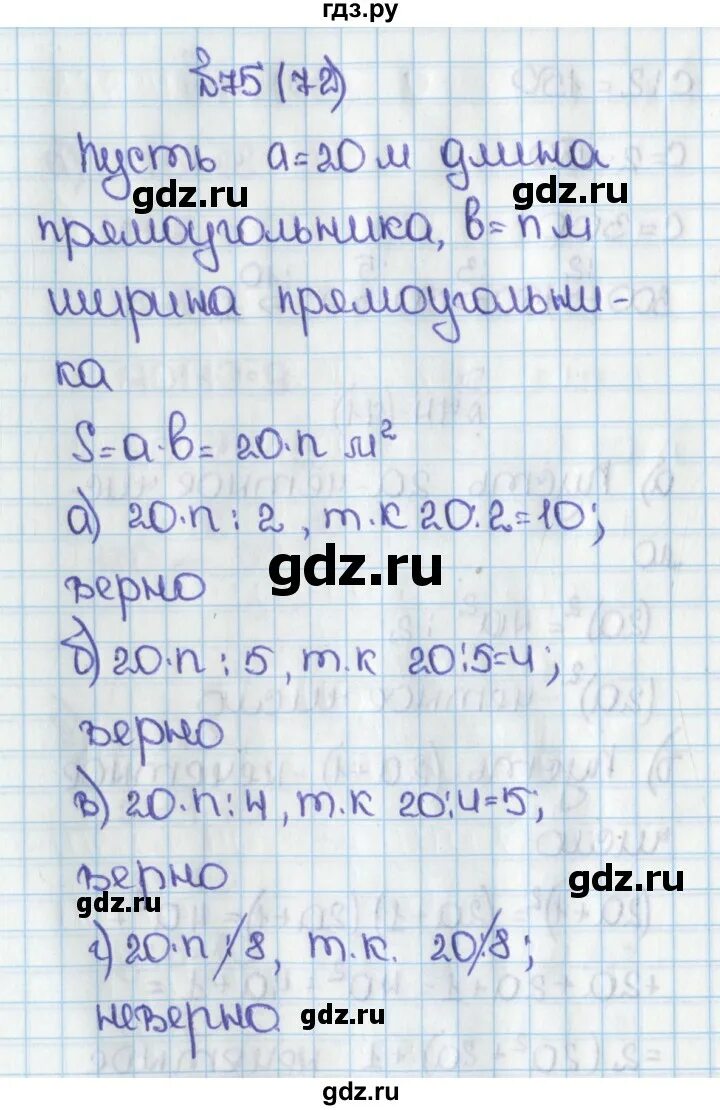 гдз.ру
№75 (72)
Пусть a=20 м длина
gdz.ru
gdz.ru
прямоугольника, b=n м
ширина прямоугольни-
ка
S=a·b= 20·n м²
а) 20·n : 2, т.к 20:2=10;
gdz.ru
верно
б) 20·n : 5, т.к 20:5=4;
верно
в) 20·n:4, т.к 20:4=5;
верно
gdz.ru
gdz.ru
г) 20·n ⋮̸ 8, т.к. 20 ⋮̸ 8;
неверно
gdz.ru
gdz.ru